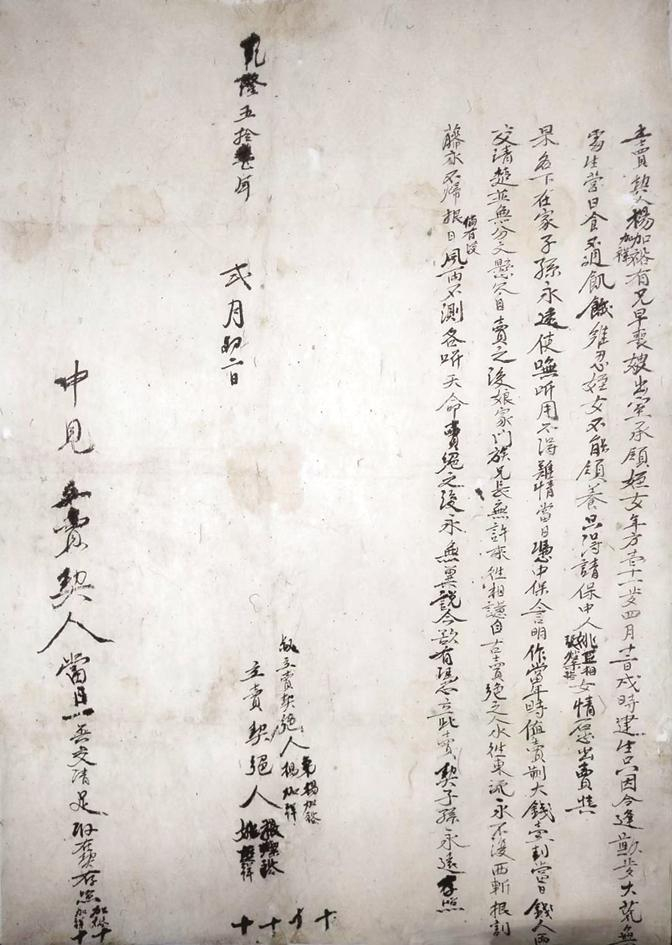 立賣契人楊加裕加祥有兄早喪嫂出室承領姪女年方壹十一歲四月十一日戌時建生只因今逢歉歲大荒無
處生營日食不通飢餓难忍姪女不能領養只得請保中人姚 相 女情愿出賣與
果名下在家子孫永遠使喚听用不得難情當日憑中保人言明作當年時值賣制大錢 當日錢人兩
交清楚並無分文懸欠自賣之後娘家門族兄長無許來往相認自古賣絕之人水往東流永不復西斬根割
藤永不歸根日後倘有風雨不測各听天命賣絕之後永無異說今欲有憑立此賣契子孫永遠存照
立賣契絕人楊加祥 弟楊加裕
立賣契絕人 姚 祥 張 裕
十十十十
乾隆五拾 年
弍月初二日
中見立賣契人當日 交清足 存照加裕十加祥十